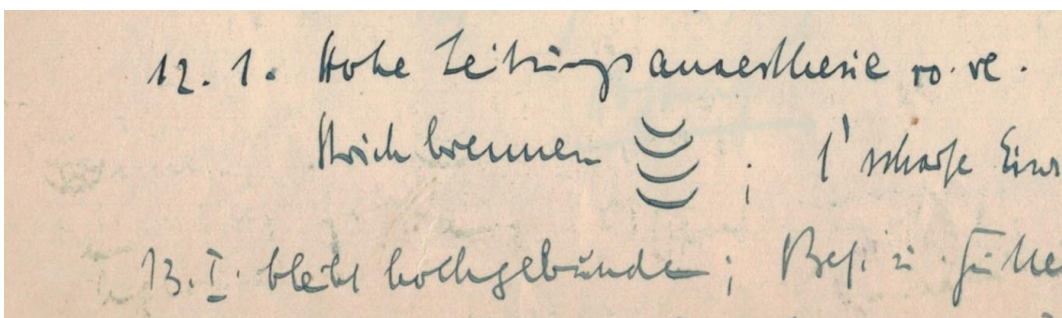 12. 1. Hohe Leitungsanaesthesie vo. re.
Strichbrennen ; 1' scharfe Einr
13. I. bleibt hochgebunden ; Bef. i